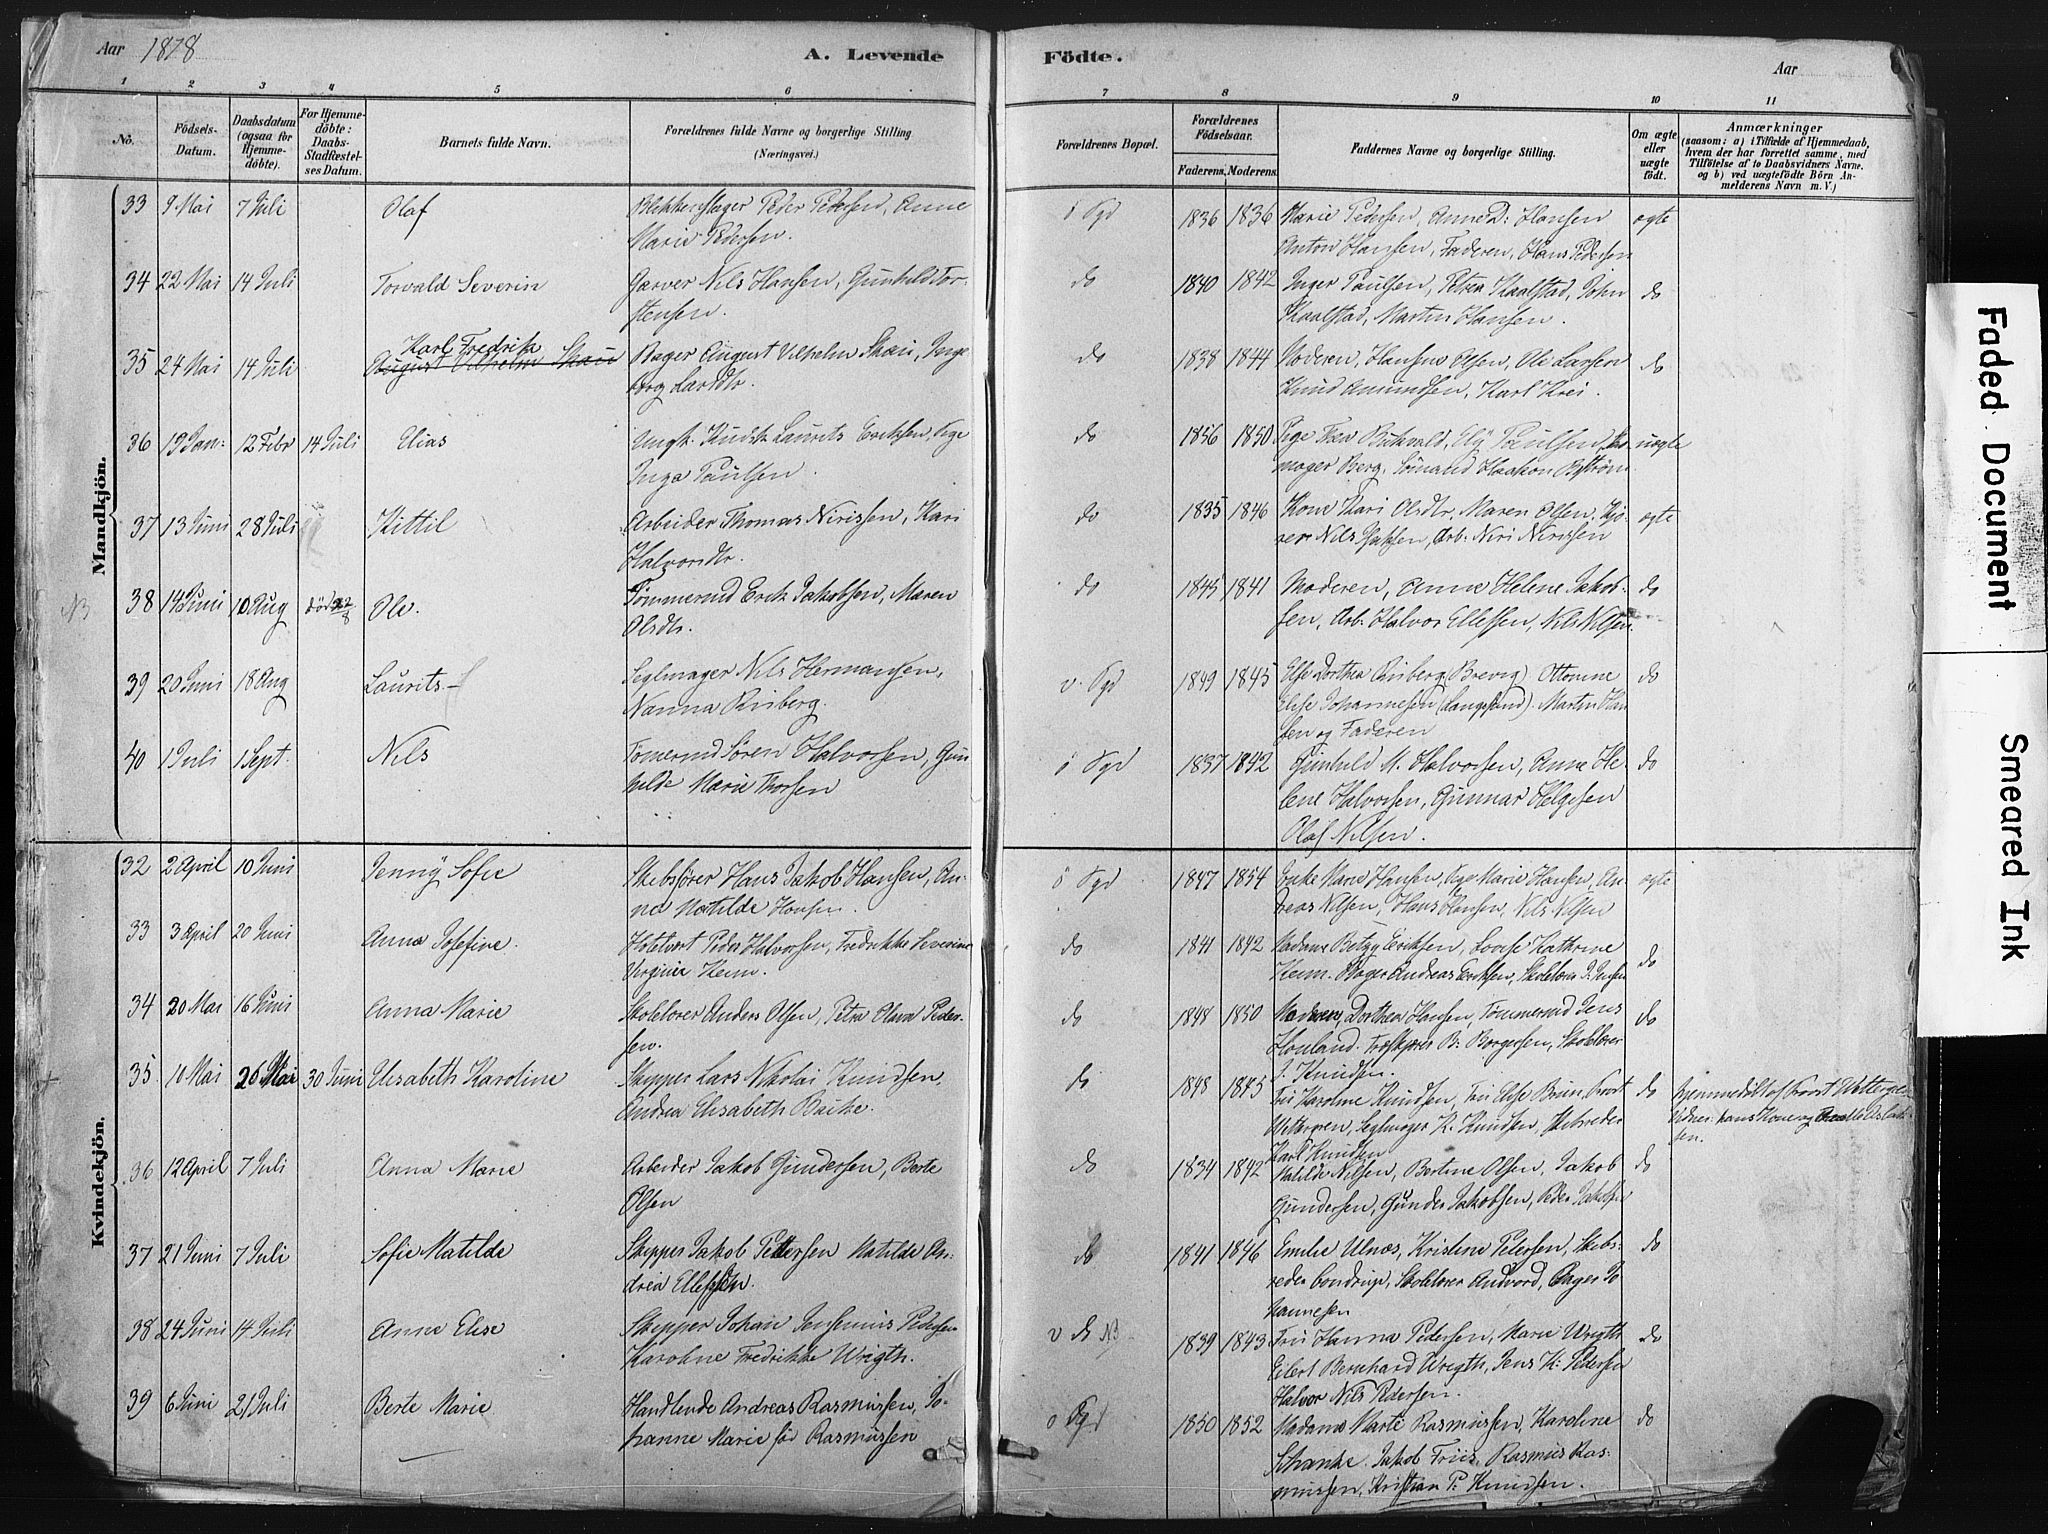 Aar 1878
A. Levende Födte.
Aar
1 2 3 4 5 6 7 8 9 10 11
No.
Födsels-
Datum.
Daabsdatum
(ogsaa for
Hjemme-
döbte).
For Hjemme-
döbte:
Daabs-
Stadfæstel-
ses Datum.
Barnets fulde Navn.
Forældrenes fulde Navne og borgerlige Stilling
(Næringsvei.)
Forældrenes Bopæl.
Forældrenes
Födselsaar.
Faderens. Moderens.
Faddernes Navne og borgerlige Stilling.
Om ægte
eller
uægte
födt.
Anmærkninger
(saasom: a) i Tilfælde af Hjemmedaab,
hvem der har forrettet samme, med
Tilföielse af to Daabsvidners Navne.
og b) ved uægtefödte Börn An-
melderens Navn m. V.)
Mandkjön.
33 9 Mai 7 Juli Olaf Blikkenslager Peder Pedersen, Anne
Marie Pedersen.
ö Sgd 1836 1836 Marie Pedersen, Anne D: Hansen
Anton Hansen, Faderen, Hans Pedersen
ægte
34 22 Mai 14 Juli Torvald Severin Garver Nils Hansen, Gunhild Tor-
stensen.
do 1840 1842 Inger Paulsen, Petrea Kaalstad, John
Kaalstad, Martin Hansen.
do
35 24 Mai 14 Juli Karl Fredrik
August Vilhelm Skau
Bager August Vilhelm Skau, Inge
borg Larsdtr.
do 1838 1844 Moderen, Hansine Olsen, Ole Larsen
Knud Amundsen, Karl Krei.
do
36 19 Jan: 12 Febr 14 Juli Elias Ungk. Kudsk Laurits Eriksen, Pige
Inga Paulsen.
do 1856 1850 Pige Thea Bukvald, Elij Paulsen,
mager Berg, Sömand Haakon Byström
uægte
37 13 Juni 28 Juli Kittil Arbeider Thomas Nirissen, Kari
Halvorsdtr.
do 1835 1846 Kone Mari Olsdtr, Maren Olsen, Kjö-
rer Nils Isaksen, Arb: Niri Nirissen
ægte
NB
38 14 Juni 10 Aug död 22/8 Ole. Tömmermd Erik Jakobsen, Maren
Olsdtr.
do 1845 1841 Moderen, Anne Helene Jakob-
sen, Arb. Halvor Ellefsen, Nils Nilsen.
do
39 20 Juni 18 Aug Laurits Seglmager Nils Hermansen,
Nanna Riiberg.
v. Sgd 1849 1845 Else Dorthea Riiberg (Brevig) Ottomine
Elise Johannesen (Langesund). Martin Han
sen og Faderen
do
40 1 Juli 1 Sept. Nils Tömermd Sören Halvorsen, Gun
hilde Marie Thorsen
ö Sgd 1837 1842 Gunhild M. Halvorsen, Anne He-
lene Halvorsen, Gunnar Helgesen
Olaf Nilsen.
do
Kvindekjön.
32 2 April 10 Juni Jenny Sofie Skibsförer Hans Jakob Hansen, An-
na Matilde Hansen.
ö Sgd 1847 1854 Marie Hansen, Pige Marie Hansen, An-
dreas Nilsen, Hans Hansen, Nils Nilsen
ægte
33 3 April 20 Juni Anna Josefine. Hotelvert Peder Halvorsen, Fredrikke Severine
Verginie Keim.
do 1841 1842 Madame Betzy Eriksen, Lovise Kathrine
Keim. Bager Andreas Eriksen, Skolelærer P. Jensen
do
34 20 Mai 16 Juni Anna Marie Skolelærer Anders Olsen, Petra Olava Peder-
sen.
do 1848 1850 Moderen, Dorthea Hansen, Tömmermd Jens
Houland. B: Borgersen, Skolelærer
J. Knudsen.
do
35 10 Mai 26 Mai 30 Juni Elisabeth Karoline Skipper Lars Nikolai Knudsen,
Andrea Elisabeth Bache.
do 1848 1845 Fru Karoline Knudsen, Fru Else Bruun, Provst
Wettergren, Seglmager K. Knudsen, Skibsreder
Karl Knudsen
do Hjemmedöbt af Provst Wettergren
Vidner: hans Kone og
sen.
36 12 April 7 Juli Anna Marie Arbeider Jakob Gundersen, Berte
Olsen
do 1834 1842 Matilde Nilsen, Bertine Olsen, Jakob
Gundersen, Gunder Jakobsen, Peder Jakobsen
do
37 21 Juni 7 Juli Sofie Matilde Skipper Jakob Pettersen Matilde An-
drea Ellefsen.
do 1841 1846 Emilie Ulnæs, Kristine Petersen, Skibs-
reder Bondrup, Skolelærer Andvord, Bager Jo
hannesen
do
38 24 Juni 14 Juli Anne Elise Skipper Johan Jensenius Pedersen
Karoline Fredrikke Wrigth.
v do NB 1839 1843 Fru Hanna Pedersen, Marie Wrigth
Eilert Bernhard Wrigth, Jens K: Pedersen
Halvor Nils Pedersen.
do
39 6 Juni 21 Juli Berte Marie Handlende Andreas Rasmussen, Jo-
hanne Marie föd Rasmussen
ö Sgd 1850 1852 Madame Marte Rasmussen, Karoline
Schanke. Jakob Friis, Rasmus Ras-
mussen, Kristian P. Knudsen.
do
Faded Document
Smeared Ink